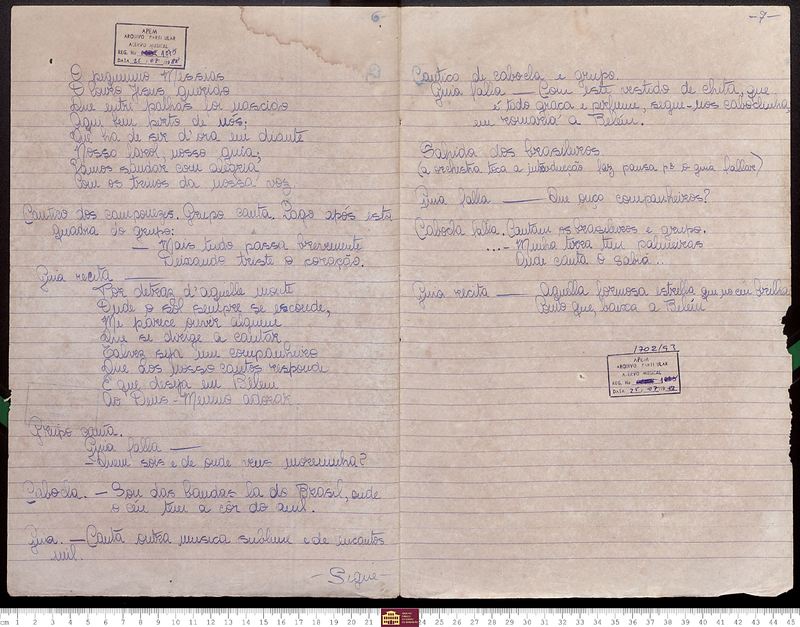 6-
APEM
ARQUIVO PARTICULAR
ACERVO MUSICAL
REG. No 1595
DATA 25, 07, 19
O pequenino Messias
O louro Jesus querido
Que entre palhas foi nascido
Aqui bem perto de nós;
Que ha de ser d'ora em diante
Nosso farol, nosso guia;
Vamos saudar com alegria
Com os trenos da nossa voz.
Cantico dos camponezes. Grupo canta. Logo após esta
quadra do grupo:
— Mais tudo passa brevemente
Deixando triste o coração.
Guia recita ———
Por detraz d'aquelle monte
Onde o sól sempre se esconde,
Me parece ouvir alguem
Que se dirige a cantar
Talvez seja um companheiro
Que aos nosso cantos responde
E que deseja em Belem
Ao Deus-Menino adorar.
Grupo canta.
Guia falla ——
— Quem sois e de onde vens moreninha?
Cabocla. — Sou das bandas la do Brasil, onde
o céu tem a côr do anil.
Guia. — Canta outra musica sublime e de encantos
mil.
— Segue —
—7—
Cantico de cabocla e grupo.
Guia falla — Com este vestido de chita, que
é todo graça e perfume, segue-nos caboclinha,
em romaria a Belém.
Sahida dos brasileiros
(a orchestra toca a introducção faz pausa pª o guia fallar)
Guia falla ——— Que ouço companheiros?
Cabocla falla. Cantam os brasileiros e grupo.
...- Minha terra tem palmeiras
Onde canta o sabiá...
Guia recita ——— Aquella formosa estrella que no ceu brilha
Creio que, baixa a Belém
1702/93
APEM
ARQUIVO PARTICULAR
ACERVO MUSICAL
REG. No 1595
DATA 25, 07, 19
cm 1 2 3 4 5 6 7 8 9 10 11 12 13 14 15 16 17 18 19 20 21 24 25 26 27 28 29 30 31 32 33 34 35 36 37 38 39 40 41 42 43 44 45